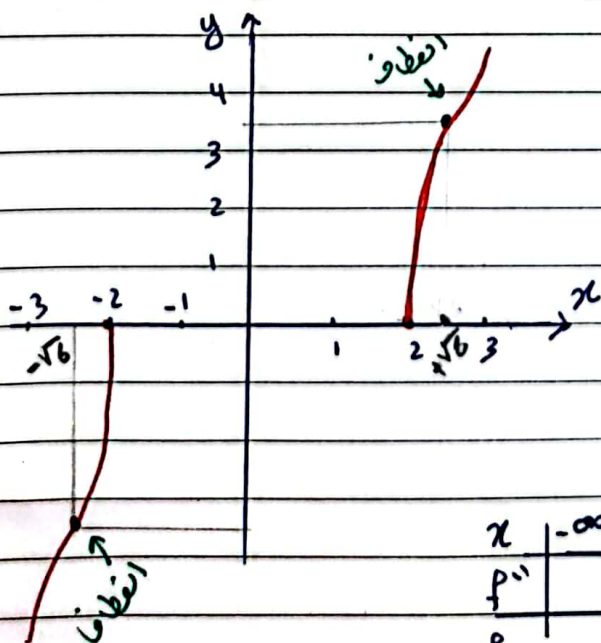 y
انعطاف
4
3
2
1
-3 -2 -1 x
-√6 1 2 +√6 3
انعطاف
x -∞
f"